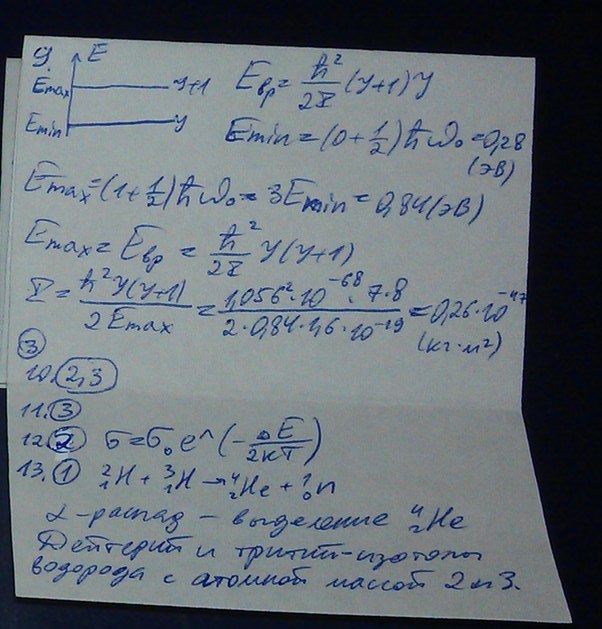 9. E
Emax y+1
Emin y
Eвр = ħ²/2I (y+1)y
Emin = (0 + 1/2)ħω₀ = 0,28
(эВ)
Emax = (1 + 1/2)ħω₀ = 3Emin = 0,84(эВ)
Emax = Eвр = ħ²/2I y(y+1)
I = ħ²y(y+1)/2Emax = 1,056²·10⁻⁶⁸·7·8/2·0,84·1,6·10⁻¹⁹ = 0,26·10⁻⁴⁷
(кг·м²)
3
10. 2,3
11. 3
12. 2 σ = σ₀ e^(-ΔE/2kT)
13. 1 ²₁H + ³₁H → ⁴₂He + ¹₀n
α-распад – выделение ⁴₂He
Дейтерий и тритий-изотопы
водорода с атомной массой 2 и 3.